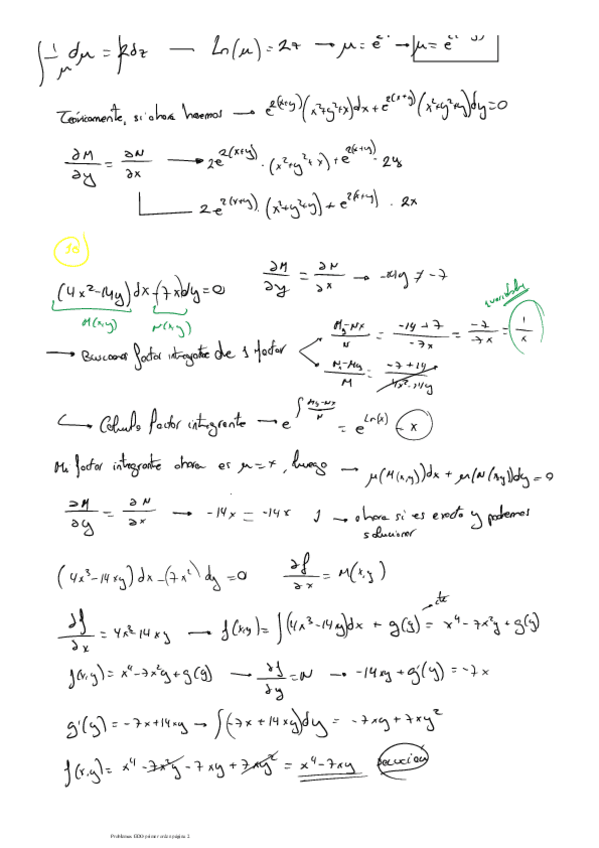 ∫ 1/μ dμ = ∫2dz — Ln(μ) = 2z → μ = e → μ = e
Teóricamente, si ahora hacemos → e^2(x+y) (x²+y²+x)dx + e^2(x+y) (x²+y²+y)dy = 0
∂M/∂y = ∂N/∂x → 2e^2(x+y) · (x²+y²+x) + e^2(x+y) · 2y
2e^2(x+y) · (x²+y²+y) + e^2(x+y) · 2x
(4x²-14y)dx - (7x)dy = 0 ∂M/∂y = ∂N/∂x → -14y ≠ -7
M(x,y) N(x,y)
→ Buscamos factor integrante de 1 factor
My-Nx/N = -14+7/-7x = -7/-7x = 1/x
Nx-My/M = -7+14/4x²-14y
Cálculo factor integrante → e^∫ My-Nx/N = e^Ln(x) = x
Mi factor integrante ahora es μ=x, luego → μ(M(x,y))dx + μ(N(x,y))dy = 0
∂M/∂y = ∂N/∂x → -14x = -14x → ahora si es exacto y podemos
solucionar
(4x³-14xy)dx - (7x²)dy = 0 ∂f/∂x = M(x,y)
∂f/∂x = 4x³-14xy → f(x,y) = ∫(4x³-14xy)dx + g(y) = x⁴-7x²y+g(y)
f(x,y) = x⁴-7x²y+g(y) → ∂f/∂y = N → -14xy+g'(y) = -7x
g'(y) = -7x+14xy → ∫(-7x+14xy)dy = -7xy+7xy²
f(x,y) = x⁴-7x²y-7xy+7xy² = x⁴-7xy solución
Problemas EDO primer orden página 2